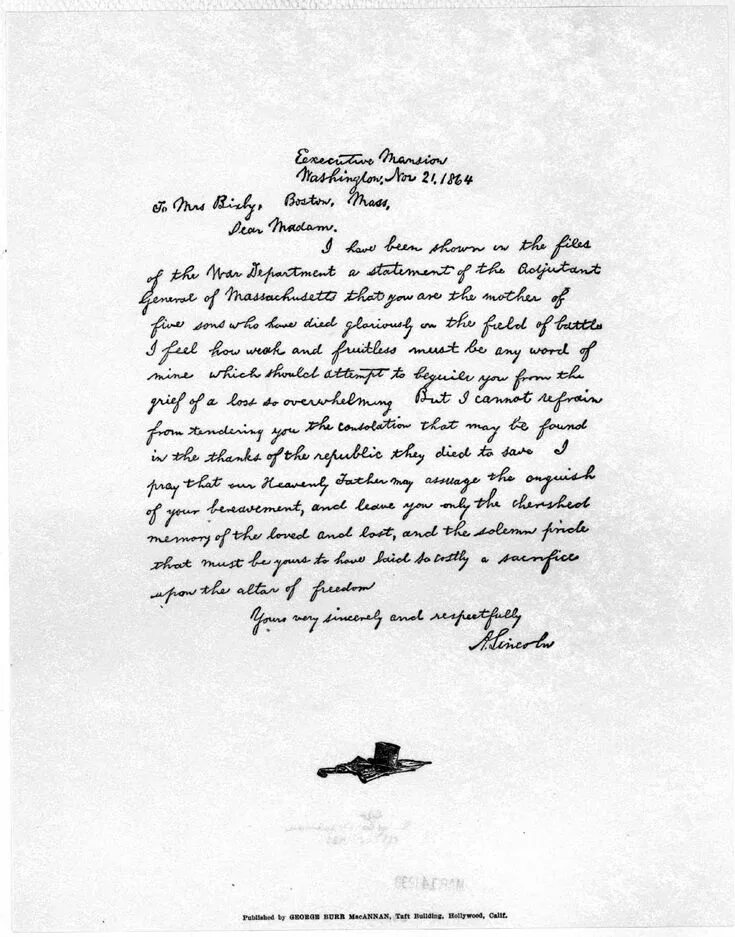 Executive Mansion
Washington, Nov 21, 1864
To Mrs Bixby, Boston, Mass,
Dear Madam.
I have been shown in the files
of the War Department a statement of the Adjutant
General of Massachusetts that you are the mother of
five sons who have died gloriously on the field of battle
I feel how weak and fruitless must be any word of
mine which should attempt to beguile you from the
grief of a loss so overwhelming But I cannot refrain
from tendering you the consolation that may be found
in the thanks of the republic they died to save I
pray that our Heavenly Father may assuage the anguish
of your bereavement, and leave you only the cherished
memory of the loved and lost, and the solemn pride
that must be yours to have laid so costly a sacrifice
upon the altar of freedom
Yours very sincerely and respectfully
A. Lincoln
Published by GEORGE BURR MacANNAN, Taft Building, Hollywood, Calif.